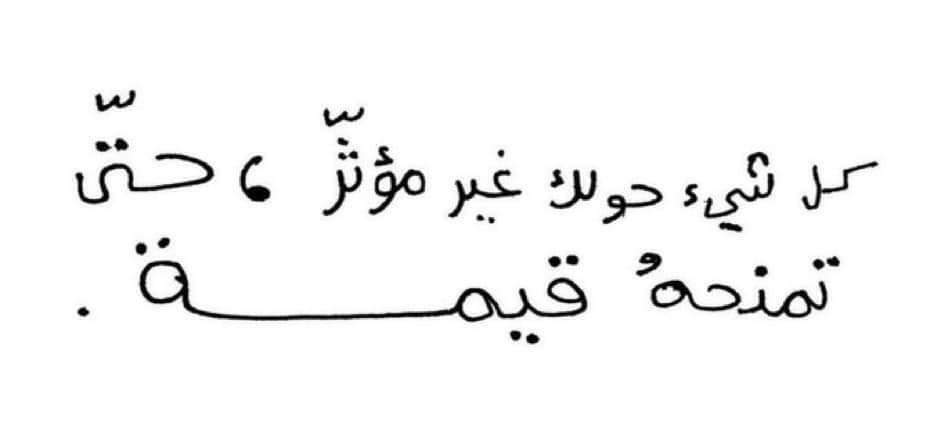 كل شيء حولك غير مؤثّر ، حتّى
تمنحهُ قيمـــــــة .